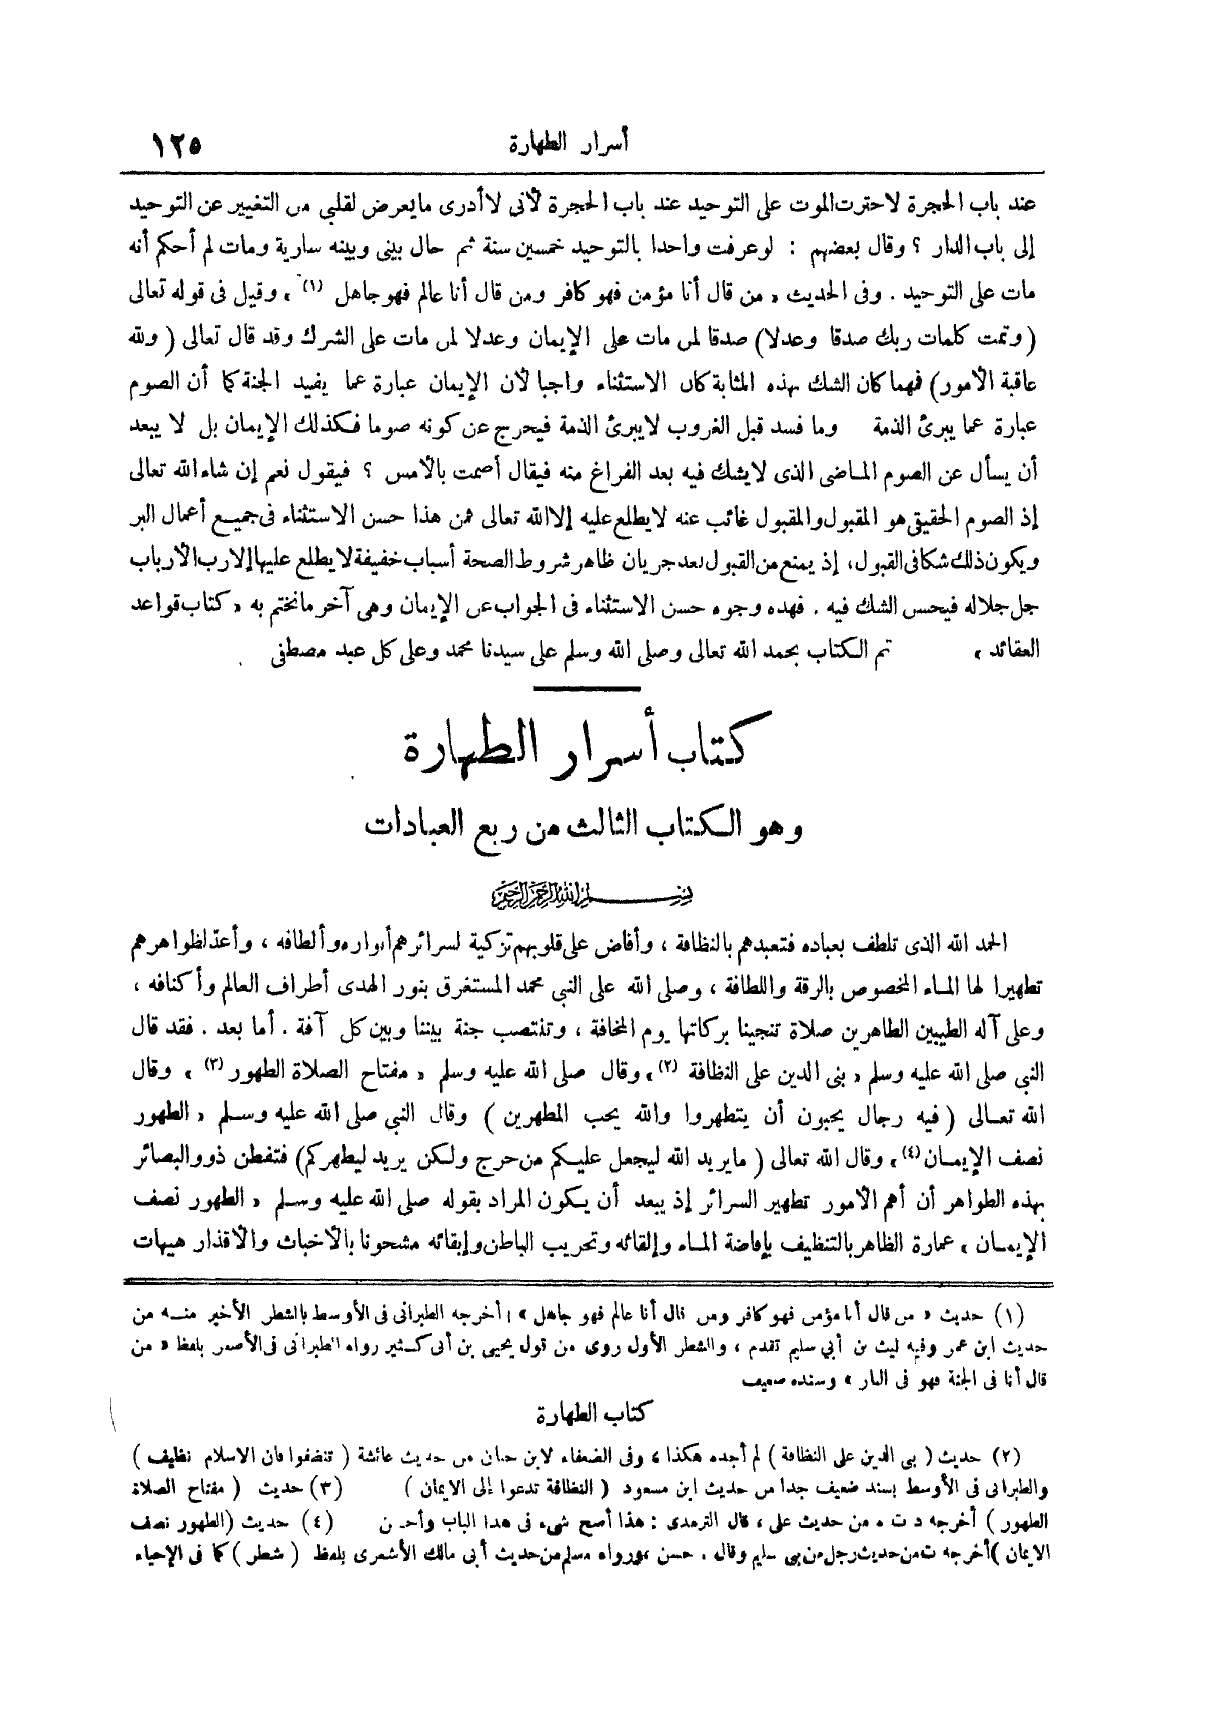 أسرار الطهارة ١٢٥
عند باب الحجرة لاخترت الموت على التوحيد عند باب الحجرة لأنى لا أدرى ما يعرض لقلبي من التغيير عن التوحيد
إلى باب الدار ؟ وقال بعضهم : لو عرفت واحدا بالتوحيد خمسين سنة ثم حال بينى وبينه سارية ومات لم أحكم أنه
مات على التوحيد . وفى الحديث « من قال أنا مؤمن فهو كافر ومن قال أنا عالم فهو جاهل (١) » وقيل فى قوله تعالى
( وتمت كلمات ربك صدقا وعدلا ) صدقا لمن مات على الإيمان وعدلا لمن مات على الشرك وقد قال تعالى ( ولله
عاقبة الأمور ) فهما كان الشك بهذه المثابة كان الاستثناء واجبا لأن الإيمان عبارة عما يفيد الجنة كما أن الصوم
عبارة عما يبرئ الذمة وما فسد قبل الغروب لا يبرئ الذمة فيخرج عن كونه صوما فكذلك الإيمان بل لا يبعد
أن يسأل عن الصوم الماضى الذى لا يشك فيه بعد الفراغ منه فيقال أصمت بالأمس ؟ فيقول نعم إن شاء الله تعالى
إذ الصوم الحقيقى هو المقبول والمقبول غائب عنه لا يطلع عليه إلا الله تعالى فمن هذا حسن الاستثناء فى جميع أعمال البر
ويكون ذلك شكا فى القبول ، إذ يمنع من القبول بعد جريان ظاهر شروط الصحة أسباب خفيفة لا يطلع عليها إلا رب الأرباب
جل جلاله فيحسن الشك فيه . فهذه وجوه حسن الاستثناء فى الجواب عن الإيمان وهى آخر ما نختم به « كتاب قواعد
العقائد » تم الكتاب بحمد الله تعالى وصلى الله وسلم على سيدنا محمد وعلى كل عبد مصطفى
كتاب أسرار الطهارة
وهو الكتاب الثالث من ربع العبادات
بسم الله الرحمن الرحيم
الحمد الله الذى تلطف بعباده فتعبدهم بالنظافة ، وأفاض على قلوبهم تزكية لسرائرهم أنواره وألطافه ، وأعد لظواهرهم
تطهيرا لها الماء المخصوص بالرقة واللطافة ، وصلى الله على النبي محمد المستغرق بنور الهدى أطراف العالم وأكنافه ،
وعلى آله الطيبين الطاهرين صلاة تنجينا بركاتها يوم المخافة ، وتنتصب جنة بيننا وبين كل آفة . أما بعد . فقد قال
النبي صلى الله عليه وسلم « بنى الدين على النظافة (٢) » وقال صلى الله عليه وسلم « مفتاح الصلاة الطهور (٣) » وقال
الله تعالى ( فيه رجال يحبون أن يتطهروا والله يحب المطهرين ) وقال النبي صلى الله عليه وسلم « الطهور
نصف الإيمان (٤) » وقال الله تعالى ( ما يريد الله ليجعل عليكم من حرج ولكن يريد ليطهركم ) فتفطن ذوو البصائر
بهذه الظواهر أن أهم الأمور تطهير السرائر إذ يبعد أن يكون المراد بقوله صلى الله عليه وسلم « الطهور نصف
الإيمان » عمارة الظاهر بالتنظيف بإفاضة الماء وإلقائه وتخريب الباطن وإبقائه مشحونا بالأخباث والأقذار هيهات
(١) حديث « من قال أنا مؤمن فهو كافر ومن قال أنا عالم فهو جاهل » أخرجه الطبرانى فى الأوسط بالشطر الأخير منه من
حديث ابن عمر وفيه ليث بن أبي سليم تقدم ، والشطر الأول روى من قول يحيى بن أبى كثير رواه الطبرانى فى الأصغر بلفظ « من
قال أنا فى الجنة فهو فى النار » وسنده ضعيف
كتاب الطهارة
(٢) حديث ( بنى الدين على النظافة ) لم أجده هكذا ، وفى الضعفاء لابن حبان من حديث عائشة ( تنضفوا فان الاسلام نظيف )
والطبرانى فى الأوسط بسند ضعيف جدا من حديث ابن مسعود ( النظافة تدعوا إلى الايمان ) (٣) حديث ( مفتاح الصلاة
الطهور ) أخرجه د ت ه من حديث على ، قال الترمذى : هذا أصح شيء فى هذا الباب وأحسن (٤) حديث ( الطهور نصف
الايمان ) أخرجه ت من حديث رجل من بنى سليم وقال . حسن ، ورواه مسلم من حديث أبى مالك الأشعرى بلفظ ( شطر ) كما فى الإحياء